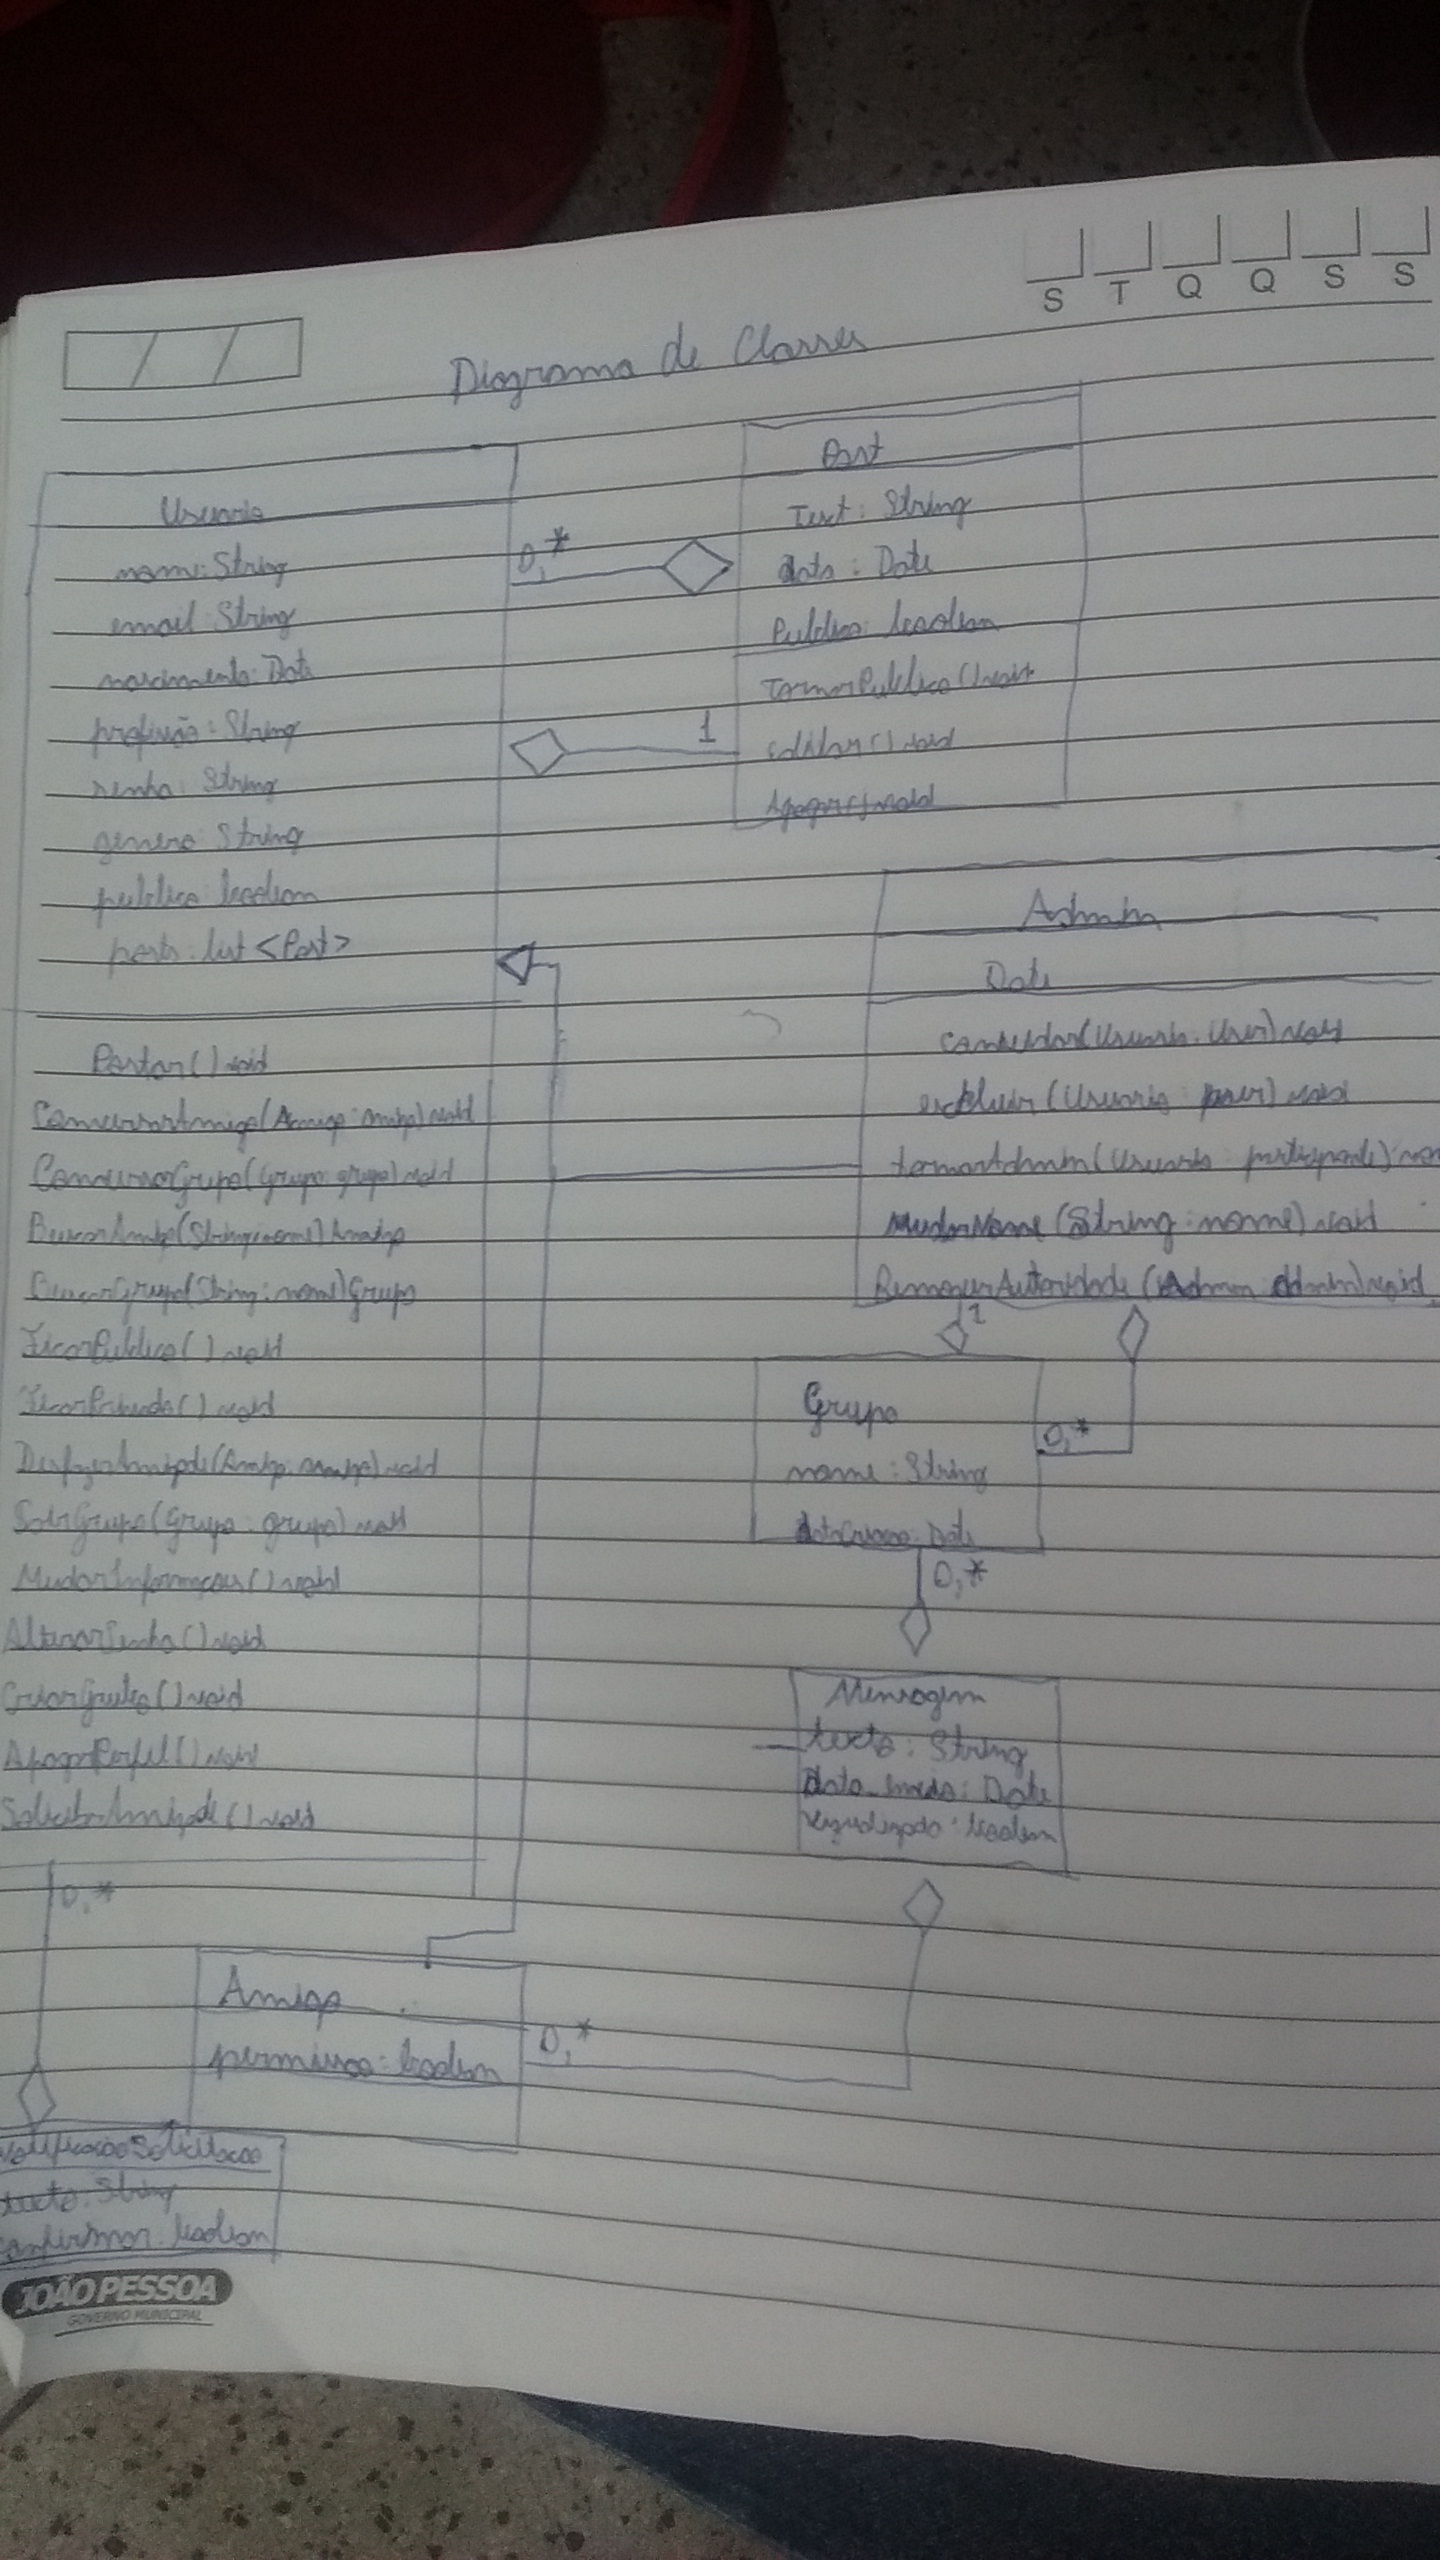 S T Q Q S S
Diagrama de Classes
Usuario
nome: String
email: String
nascimento: Date
profissão: String
senha: String
genero: String
publico: boolean
posts: list <Post>
Postar() void
ConversarAmigo(Amigo: amigo) void
ConversarGrupo(Grupo: grupo) void
BuscarAmigo(String: nome) Amigo
BuscarGrupo(String: nome) Grupo
FicarPublico() void
FicarPrivado() void
DesfazerAmizade(Amigo: amigo) void
SairGrupo(Grupo: grupo) void
MudarInformações() void
AlterarSenha() void
CriarGrupo() void
ApagarPerfil() void
SolicitarAmizade() void
0,*
0,*
1
Post
Text: String
data: Date
Publico: boolean
TornarPublico() void
editar() void
Apagar() void
Admin
Date
convidar(Usuario: User) void
excluir(Usuario: user) void
tornarAdmin(Usuario: participante)
MudarNome(String: nome) void
RemoverAutoridade(Admin: Admin) void
1
Grupo
nome: String
dataCriacao: Date
0,*
0,*
Mensagem
texto: String
data_envio: Date
visualizado: boolean
Amigo
permissao: boolean
0,*
texto: String
confirmar: boolean
JOÃO PESSOA
GOVERNO MUNICIPAL